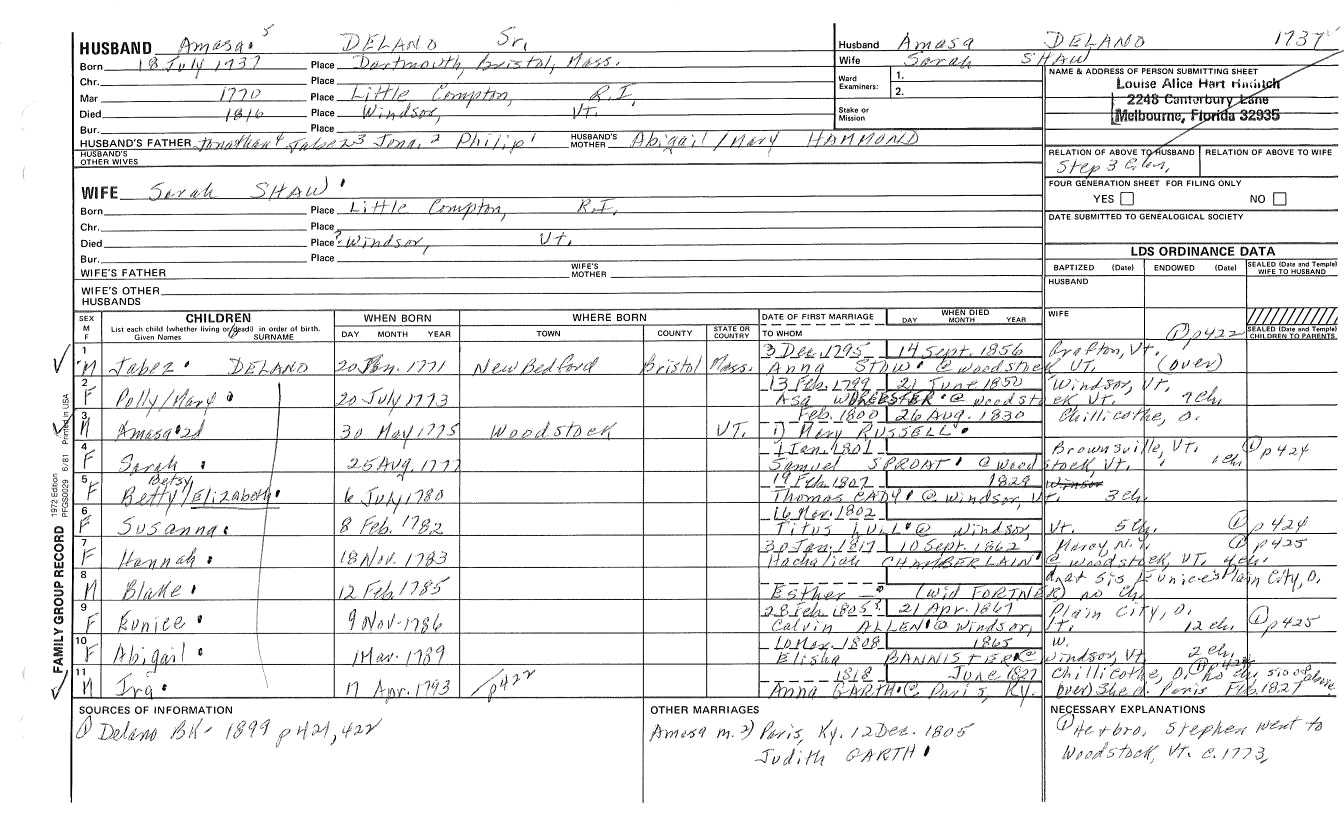 HUSBAND Amasa 5 DELANO Sr.
Born 18 July 1737 Place Dartmouth, Bristol, Mass.
Chr. Place
Mar 1770 Place Little Compton, R.I.
Died 1816 Place Windsor, Vt.
Bur. Place
HUSBAND'S FATHER Jonathan 4 Jabez 3 Jona. 2 Philip 1 HUSBAND'S MOTHER Abigail / Mary HAMMOND
HUSBAND'S OTHER WIVES
Husband Amasa DELANO 1737
Wife Sarah SHAW
Ward Examiners: 1.
2.
Stake or Mission
NAME & ADDRESS OF PERSON SUBMITTING SHEET
Louise Alice Hart
2248 Canterbury Lane
Melbourne, Florida 32935
RELATION OF ABOVE TO HUSBAND RELATION OF ABOVE TO WIFE
Step 3
FOUR GENERATION SHEET FOR FILING ONLY
YES NO
DATE SUBMITTED TO GENEALOGICAL SOCIETY
WIFE Sarah SHAW
Born Place Little Compton, R.I.
Chr. Place
Died Place ? Windsor, Vt.
Bur. Place
WIFE'S FATHER WIFE'S MOTHER
WIFE'S OTHER HUSBANDS
LDS ORDINANCE DATA
BAPTIZED (Date) ENDOWED (Date) SEALED (Date and Temple) WIFE TO HUSBAND
HUSBAND
WIFE
① p422 SEALED (Date and Temple) CHILDREN TO PARENTS
SEX M F
CHILDREN
List each child (whether living or dead) in order of birth.
Given Names SURNAME
WHEN BORN
DAY MONTH YEAR
WHERE BORN
TOWN COUNTY STATE OR COUNTRY
DATE OF FIRST MARRIAGE
TO WHOM
WHEN DIED
DAY MONTH YEAR
1 M Jabez DELANO 20 Jan. 1771 New Bedford Bristol Mass. 3 Dec. 1795 14 Sept. 1856 Grafton, Vt.
Anna STOW @ Woodstock VT. (over)
2 F Polly/Mary 20 July 1773 13 Feb. 1799 21 June 1850 Windsor, Vt.
Asa WORCESTER @ Woodstock Vt. 7 ch.
3 M Amasa 2d 30 May 1775 Woodstock VT. Feb. 1800 26 Aug. 1830 Chillicothe, O.
1) Mary RUSSELL
4 F Sarah 25 Aug. 1777 1 Jan. 1801 Brownsville, Vt. ① p424
Samuel SPROAT @ Woodstock, Vt. 1 ch.
5 F Betsy
Betty/Elizabeth 6 July 1780 19 Feb. 1807 1829 Winsor
Thomas CADY @ Windsor, Vt. 3 ch.
6 F Susanna 8 Feb. 1782 16 Mar. 1802
Titus LULL @ Windsor, Vt. 5 ch. ① p424
7 F Hannah 18 Nov. 1783 30 Jan. 1817 10 Sept. 1862 ① p425
Hachaliah CHAMBERLAIN @ Woodstock, VT. 4 ch.
8 M Blake 12 Feb. 1785 sis Eunice's Plain City, O.
Esther — (wid FORTNER) no ch.
9 F Eunice 9 Nov. 1786 28 Feb. 1805 ? 21 Apr. 1867 Plain City, O.
Calvin ALLEN @ Windsor, Vt. 12 ch. ① p425
10 F Abigail 1 Mar. 1789 10 Mar. 1808 1865 W.
Elisha BANNISTER @ Windsor, Vt. 2 ch.
11 M Ira 17 Apr. 1793 p422 1818 June 1827 Chillicothe, O.
Anna GARTH @ Paris, Ky. over) She d. Paris Feb. 1827
FAMILY GROUP RECORD
1972 Edition
PFGS0029 6/81 Printed in USA
SOURCES OF INFORMATION
① Delano BK- 1899 p 421, 422
OTHER MARRIAGES
Amasa m. 2) Paris, Ky. 12 Dec. 1805
Judith GARTH
NECESSARY EXPLANATIONS
① He + bro. Stephen went to
Woodstock, Vt. c. 1773.